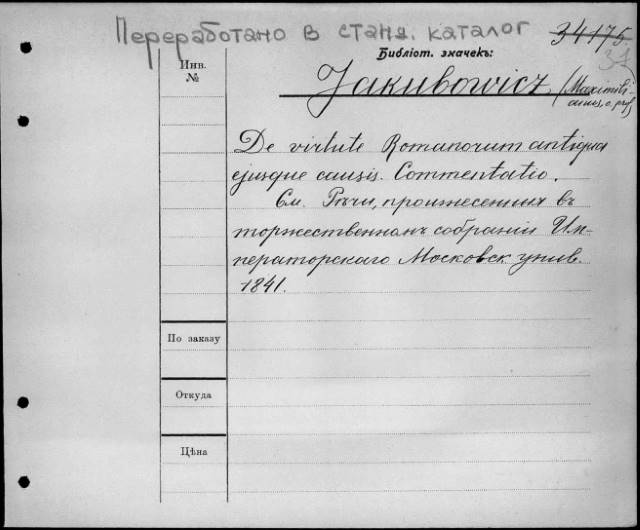 Переработано в станд. каталог
34175
37
Библіот. значекъ:
Инв.
№
Jakubowicz, (Maximili-
anus, o. prof
De virtute Romanorum antiqua
ejusque causis. Commentatio.
См. Рѣчи, произнесенныя въ
торжественномъ собраніи Им-
ператорскаго Московск. унив.
1841.
По заказу
Откуда
Цѣна